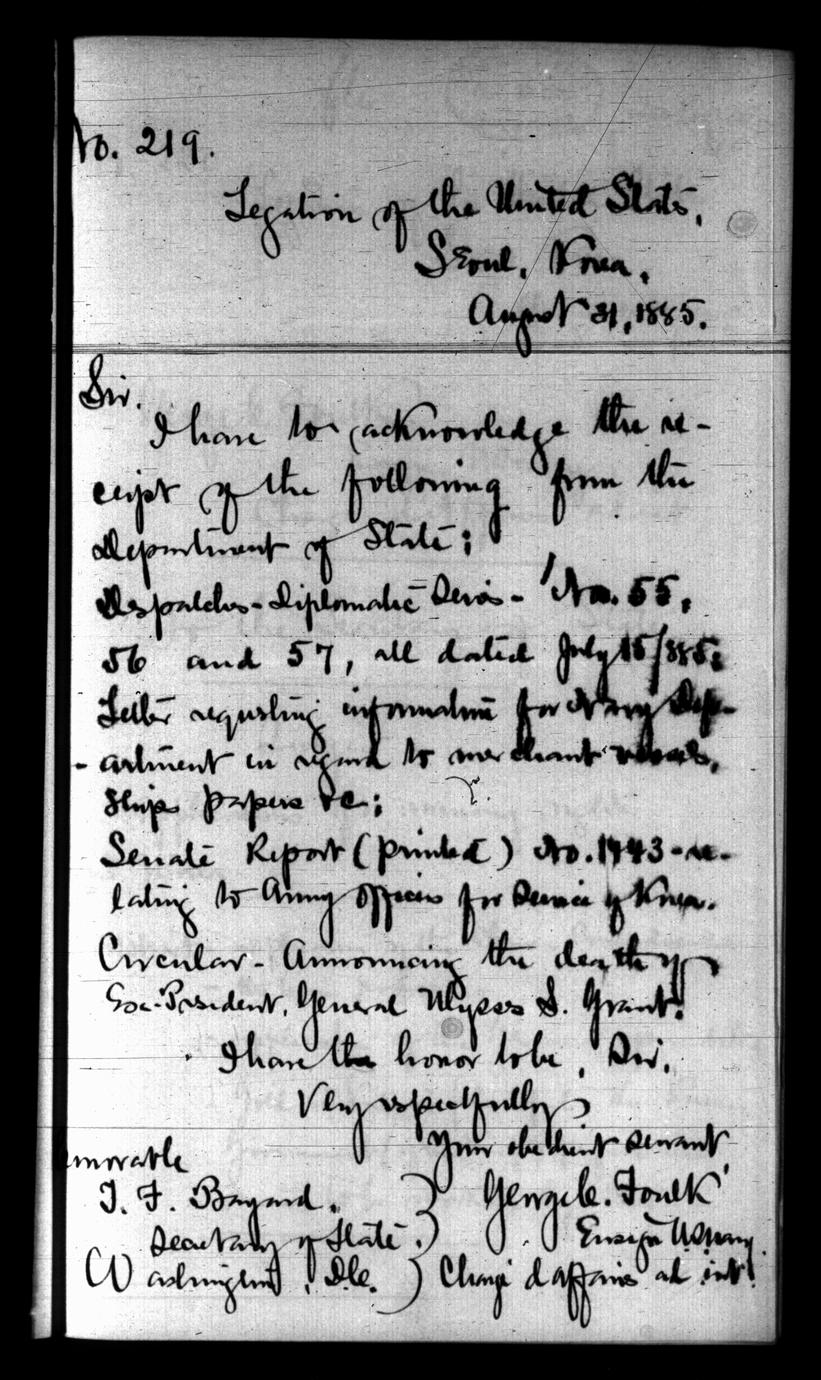 No. 219.
Legation of the United States,
Seoul, Korea,
August 31, 1885.
Sir.
I have to acknowledge the re-
ceipt of the following from the
Department of State:
Despatches - Diplomatic Series - Nos. 55,
56 and 57, all dated July 15/885;
Letter requesting information for Navy Dep-
-artment in regard to merchant vessels,
ships papers &c;
Senate Report (printed) No. 1443 - re-
lating to Army officers for service of Korea.
Circular - Announcing the death of
Ex-President, General Ulysses S. Grant.
I have the honor to be, Sir,
Very respectfully
Your obedient servant
morable
T. F. Bayard. ) George C. Foulk
Secretary of State. ) Ensign U.S. Navy
Washington, D.C. ) Chargé d'affaires ad int.